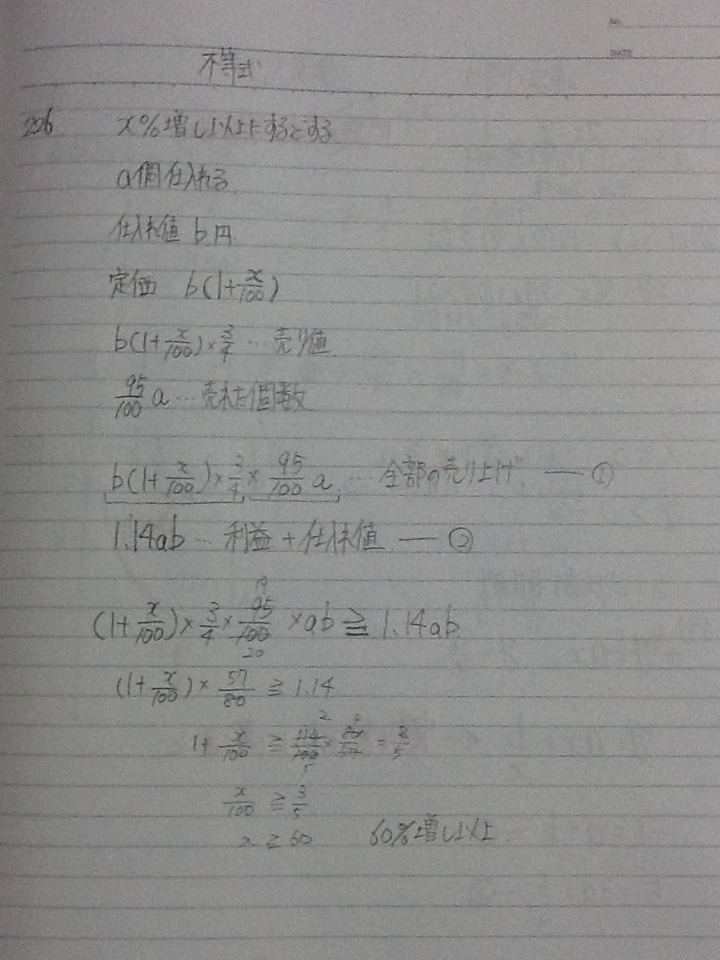 No.
DATE
不等式
226 x%増し以上にするとする
a個仕入れる
仕入れ値 b円
定価 b(1+x/100)
b(1+x/100)×3/4 … 売り値
95/100 a … 売れた個数
b(1+x/100)×3/4×95/100 a … 全部の売り上げ ― ①
1.14ab … 利益+仕入れ値 ― ②
(1+x/100)×3/4×95/100×ab≧1.14ab
19
20
(1+x/100)×57/80≧1.14
1+x/100≧114/100×80/57=8/5
x/100≧3/5
x≧60 60%増し以上